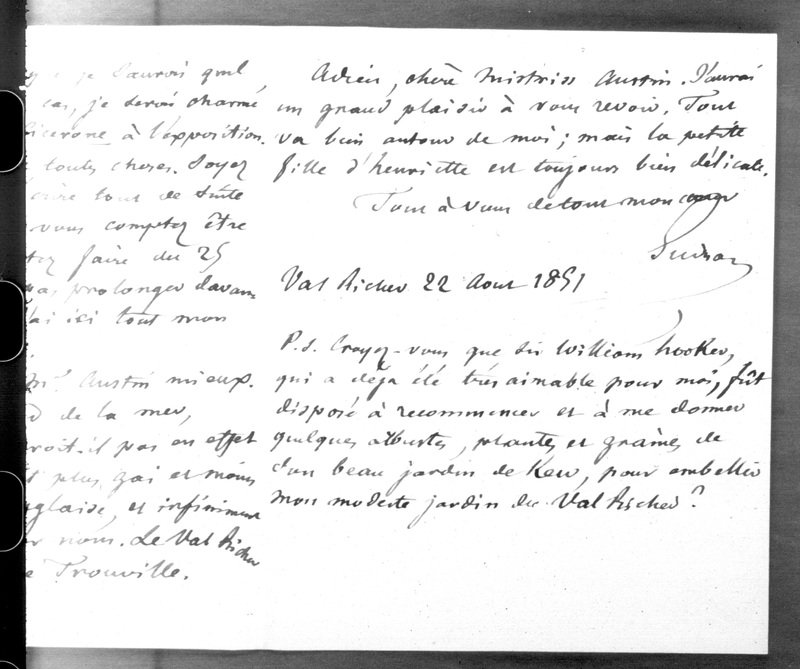 je saurai quel
cas, je serai charmé
Cicerone à l'exposition.
toutes choses. Soyez
tout de suite
vous comptez être
faire du 25
pas prolonger davan-
j'ai ici tout mon
Mr. Austin mieux.
de la mer,
-roit-il pas en effet
plus gai et moins
anglaise, et infiniment
nous. Le Val Richer
Trouville.
Adieu, chère Mistriss Austin. J'aurai
un grand plaisir à vous revoir. Tout
va bien autour de moi; mais la petite
fille d'henriette est toujours bien délicate.
Tout à vous de tout mon coeur
Guizot
Val Richer 22 Aout 1851
P.S. Croyez-vous que Sir William hooker,
qui a déjà été très aimable pour moi, fût
disposé à recommencer et à me donner
quelques arbustes, plantes et graines de
son beau jardin de Kew, pour embellir
mon modeste jardin du Val Richer?